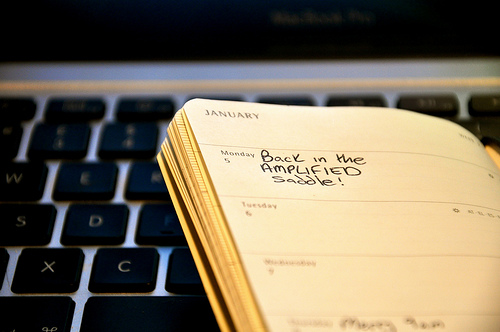 MacBook Pro
JANUARY
Monday
5
Back in the
AMPLIFIED
Saddle!
Tuesday
6
Wednesday
W
E
S
D
X
C